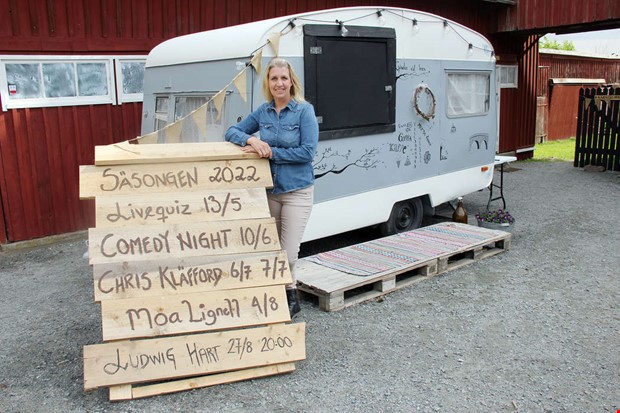 SÄSONGEN 2022
Livequiz 13/5
COMEDY NIGHT 10/6
CHRIS KLÄFFORD 6/7 7/7
Moa Lignell 4/8
LUDWIG HART 27/8 20:00